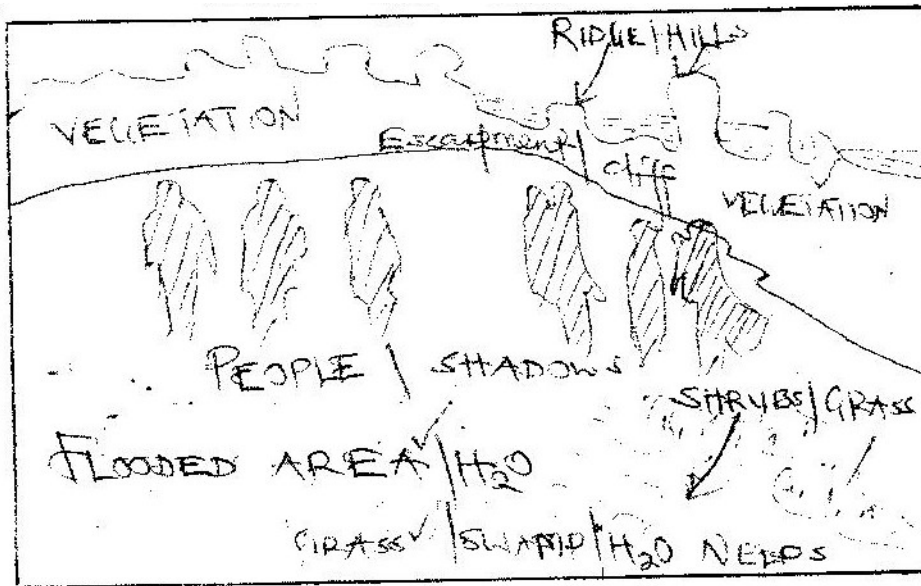 RIDGE/HILLS
VEGETATION
Escarpment/
cliff
VEGETATION
PEOPLE \ SHADOWS
SHRUBS/GRASS
FLOODED AREA/H₂O
GRASS/SWAMP/H₂O NEEDS